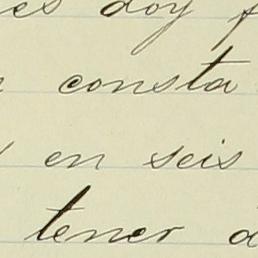 es doy f
consta
en seis
tener d